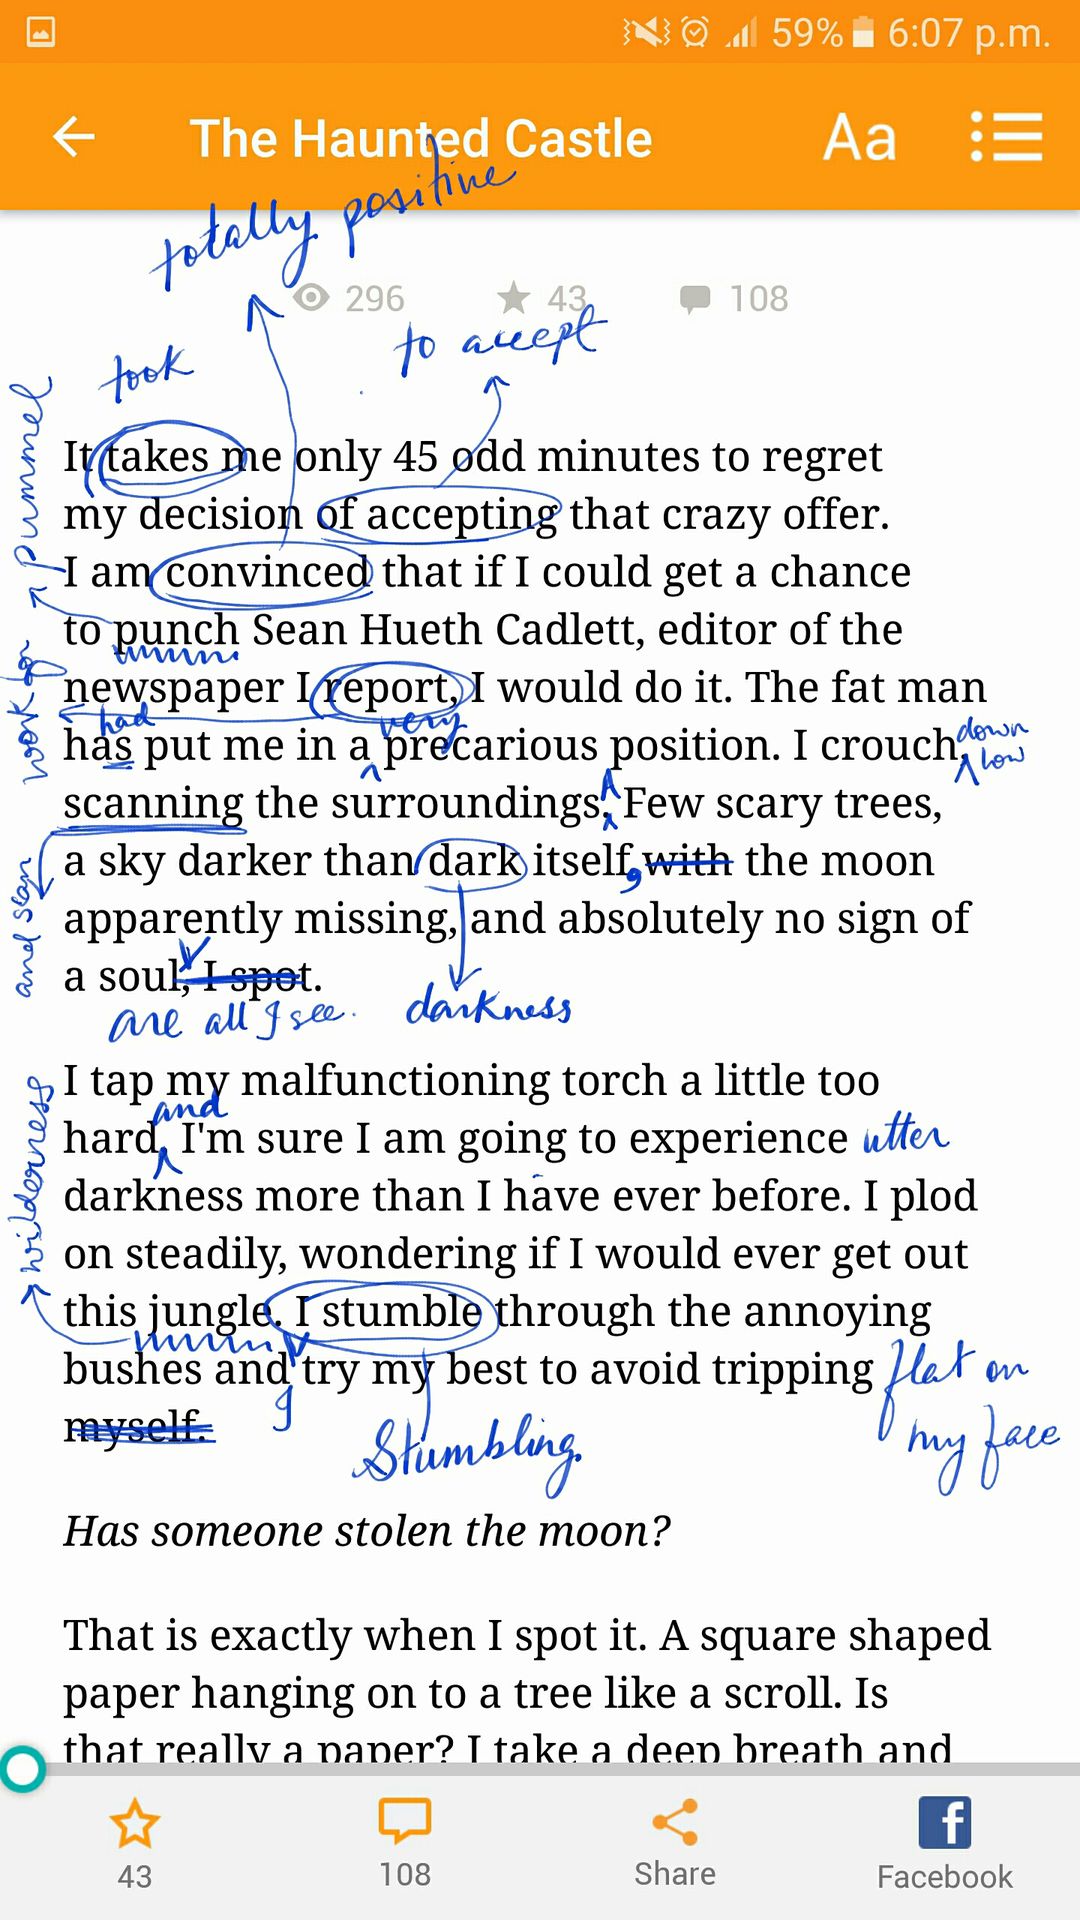 59% 6:07 p.m.
The Haunted Castle Aa
totally positive
296 43 108
took to accept
pummel
It takes me only 45 odd minutes to regret
my decision of accepting that crazy offer.
I am convinced that if I could get a chance
to punch Sean Hueth Cadlett, editor of the
work for
newspaper I report, I would do it. The fat man
had very down low
has put me in a precarious position. I crouch,
scanning the surroundings. Few scary trees,
and scan
a sky darker than dark itself, with the moon
apparently missing, and absolutely no sign of
a soul, I spot.
are all I see. darkness
I tap my malfunctioning torch a little too
and
hard, I'm sure I am going to experience utter
darkness more than I have ever before. I plod
wilderness
on steadily, wondering if I would ever get out
this jungle. I stumble through the annoying
bushes and try my best to avoid tripping flat on
myself. I my face
Stumbling.
Has someone stolen the moon?
That is exactly when I spot it. A square shaped
paper hanging on to a tree like a scroll. Is
that really a paper? I take a deep breath and
43 108 Share Facebook